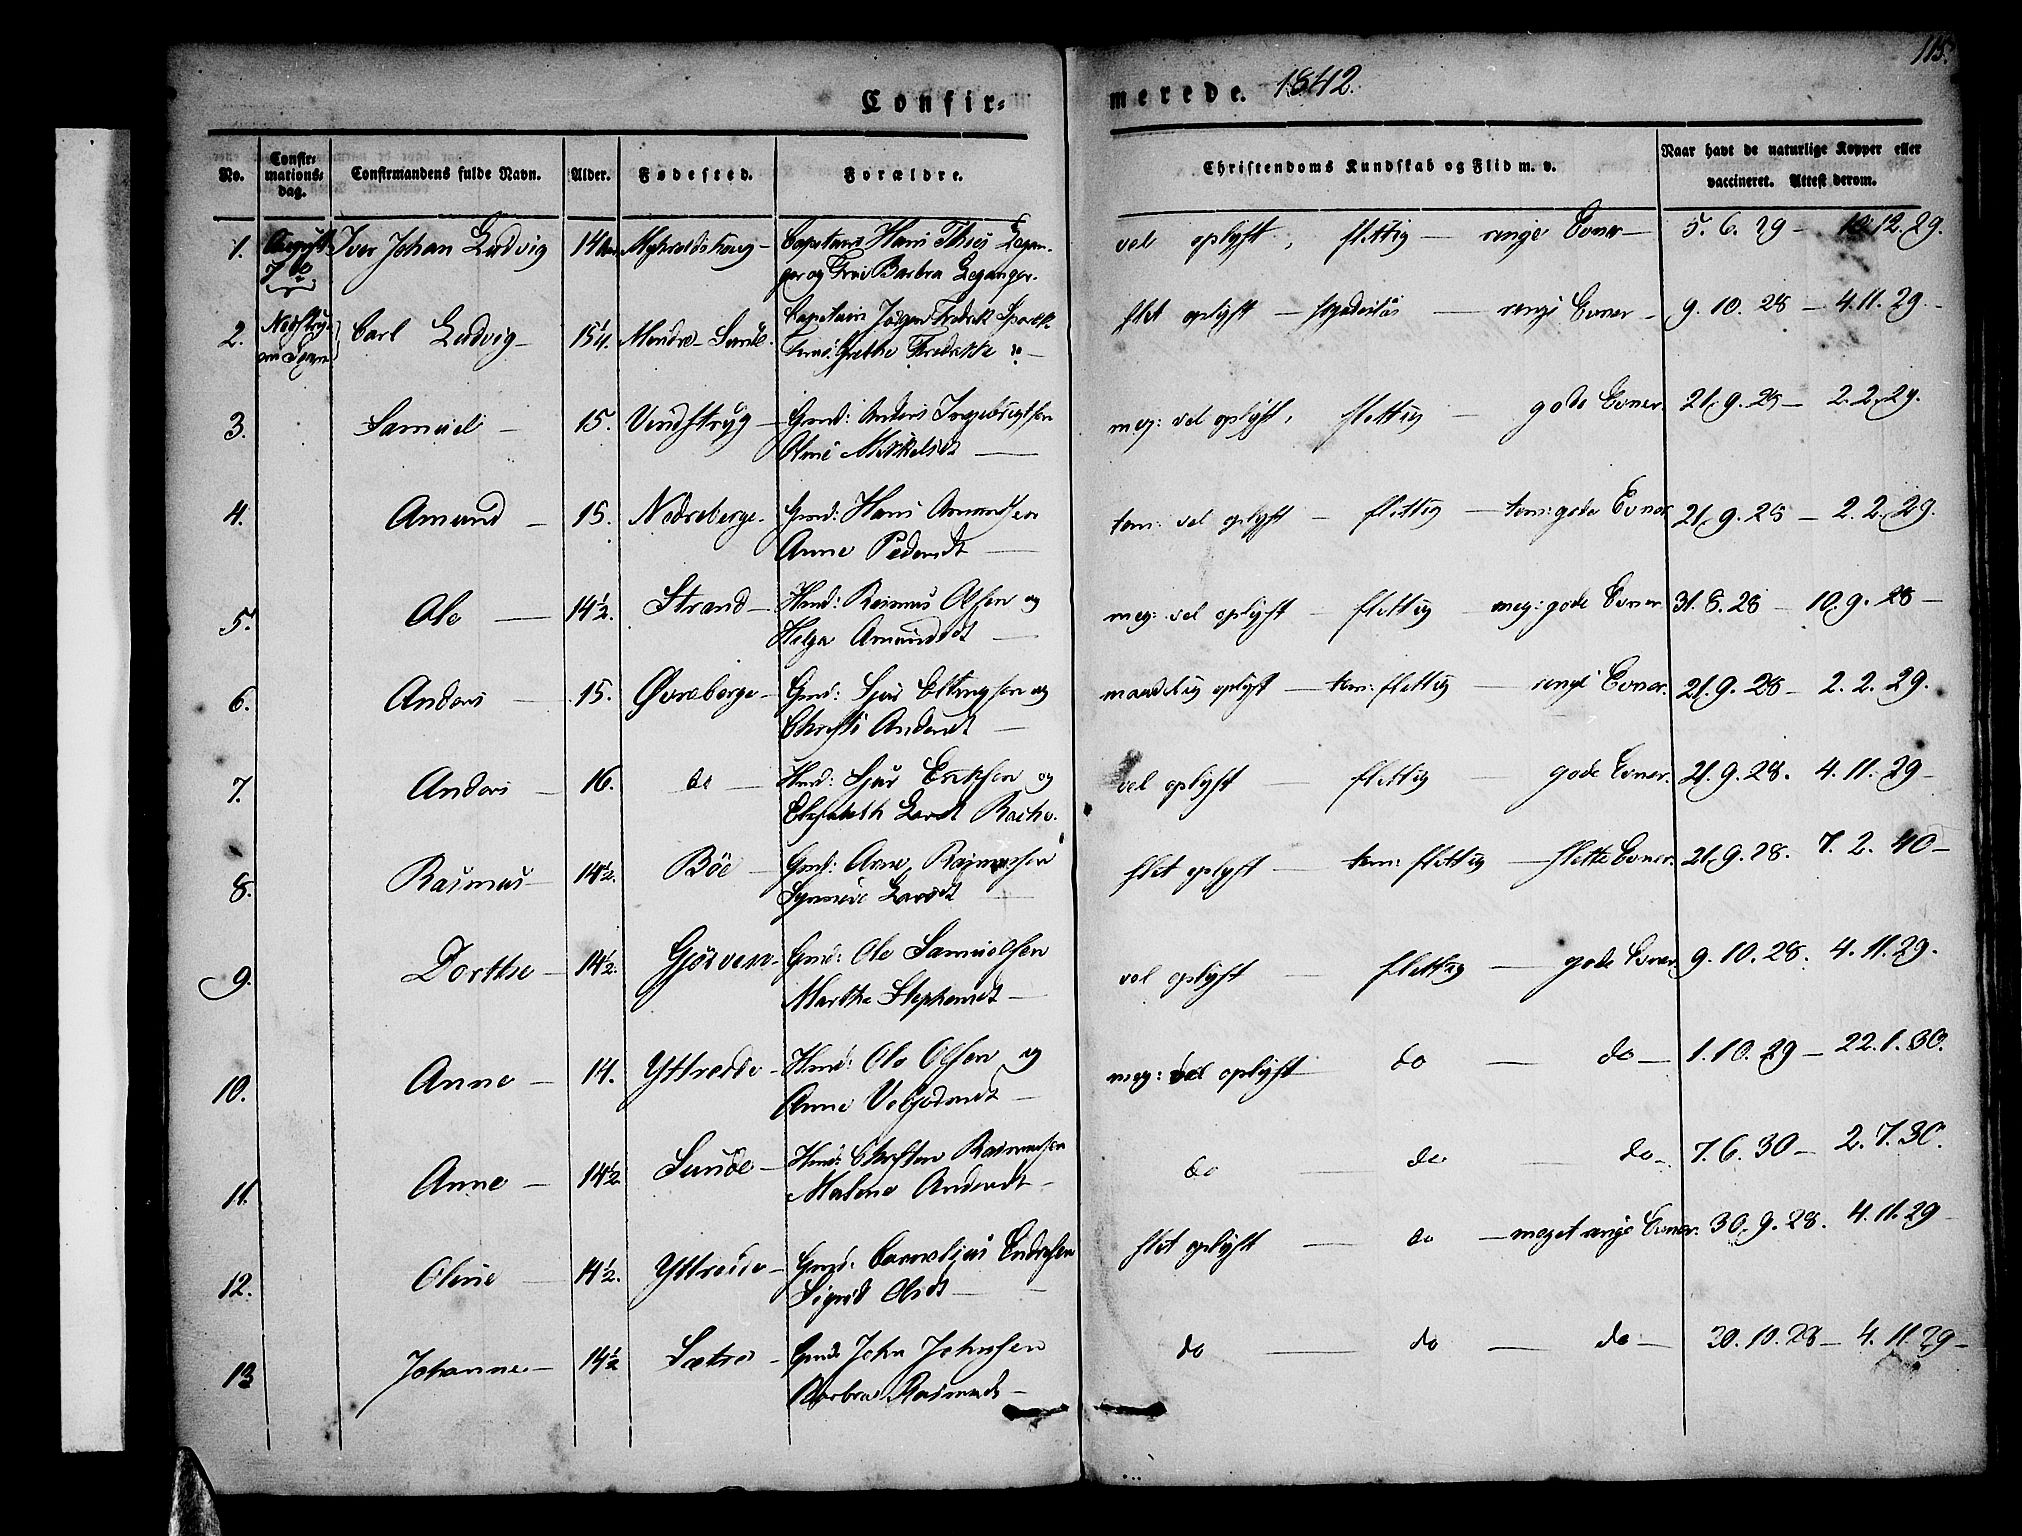 115.
Confir=
merede. 1842.
No.
Confir=
mations=
dag.
Confirmandens fulde Navn.
Alder.
Fødested.
Forældre.
Christendoms Kundskab og Flid m. v.
Naar havt de naturlige Kopper eller
vaccineret. Attest derom.
1. August Iver Johan Ludvig Capitaine Hans Legan-
7de ger og Barbra Leganger.
vel oplyst, flittig — ringe Evner — 5. 6. 29 — 12. 29.
2. Carl Ludvig — 15¼. Sunde. Capitaine Jørgen Fredrik
Grethe Fredrikke
slet oplyst — — ringe Evner — 9. 10. 28 — 4. 11. 29 —
3. Samuel — 15. Vindstryg — Gmd: Anders Ingebrigtsen
Oline Mikkelsdt —
meg: vel oplyst, flittig — gode Evner. 21. 9. 28 — 2. 2. 29.
4. Amund — 15. Nedreberge. Gmd: Hans Amundsen
Anne Pedersdt —
tem: vel oplyst — flittig — tem: gode Evner 21. 9. 28 — 2. 2. 29.
5. Ole — 14½. Strand — Hmd: Rasmus Olsen og
Helga Amundsdt —
meg: vel oplyst — flittig — meg: gode Evner. 31. 8. 28 — 10. 9. 28 —
6. Anders — 15. Øvreberge — Gmd: Sjur og
Christi Andersdt —
maadelig oplyst — tem: flittig — ringe Evner. 21. 9. 28 — 2. 2. 29.
7. Anders — 16. do — Hmd: Sjur Eriksen og
Elisabeth Larsdt
vel oplyst — flittig — gode Evner. 21. 9. 28. 4. 11. 29 —
8. Rasmus — 14½. Böe — Gmd: Arne Rasmussen
Synneve Larsdt —
slet oplyst — tem: flittig — slette Evner. 21. 9. 28. 7. 2. 40 —
9. Dorthe — 14½. Gjörven — Gmd: Ole Samuelsen
Marthe Stephansdt —
vel oplyst — flittig — gode Evner. 9. 10. 28. 4. 11. 29.
10. Anne — 14. Yttreeide — Hmd: Ole Olsen og
Anne
meg: vel oplyst — do — do — 1. 10. 29 — 22. 1. 30.
11. Anne — 14½ Sunde — Hmd: Christen Rasmussen
Malene Andersdt —
do — do — do — 7. 6. 30 — 2. 7. 30.
12. Oline — 14½. Yttreeide — Gmd: Cornelius Endresen
Sigrid Olsdt —
slet oplyst — do — meget ringe Evner. 30. 9. 28. 4. 11. 29 —
13 Johanne — 14½ Sætre — Gmd: John Johnsen
Barbra Rasmusdt —
do — do — do — 20. 10. 28 — 4. 11. 29 —